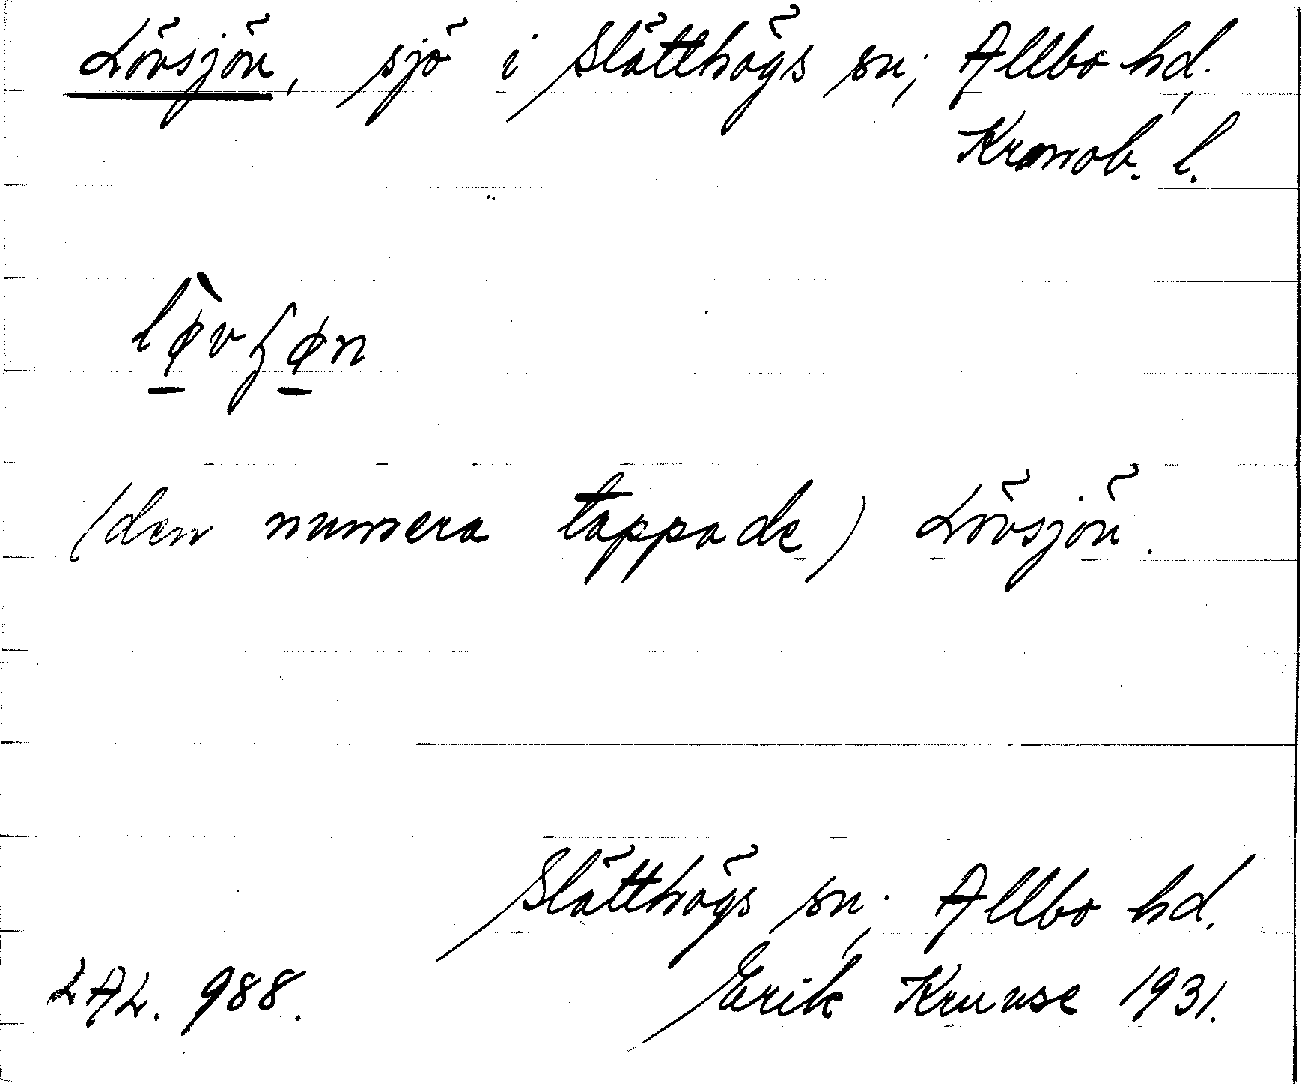 Lövsjön, sjö i Slätthögs sn; Allbo hd.
Kronob. l.
(den numera tappade) Lövsjön.
Slätthögs sn; Allbo hd.
LAL. 988. Erik Kruuse 1931.